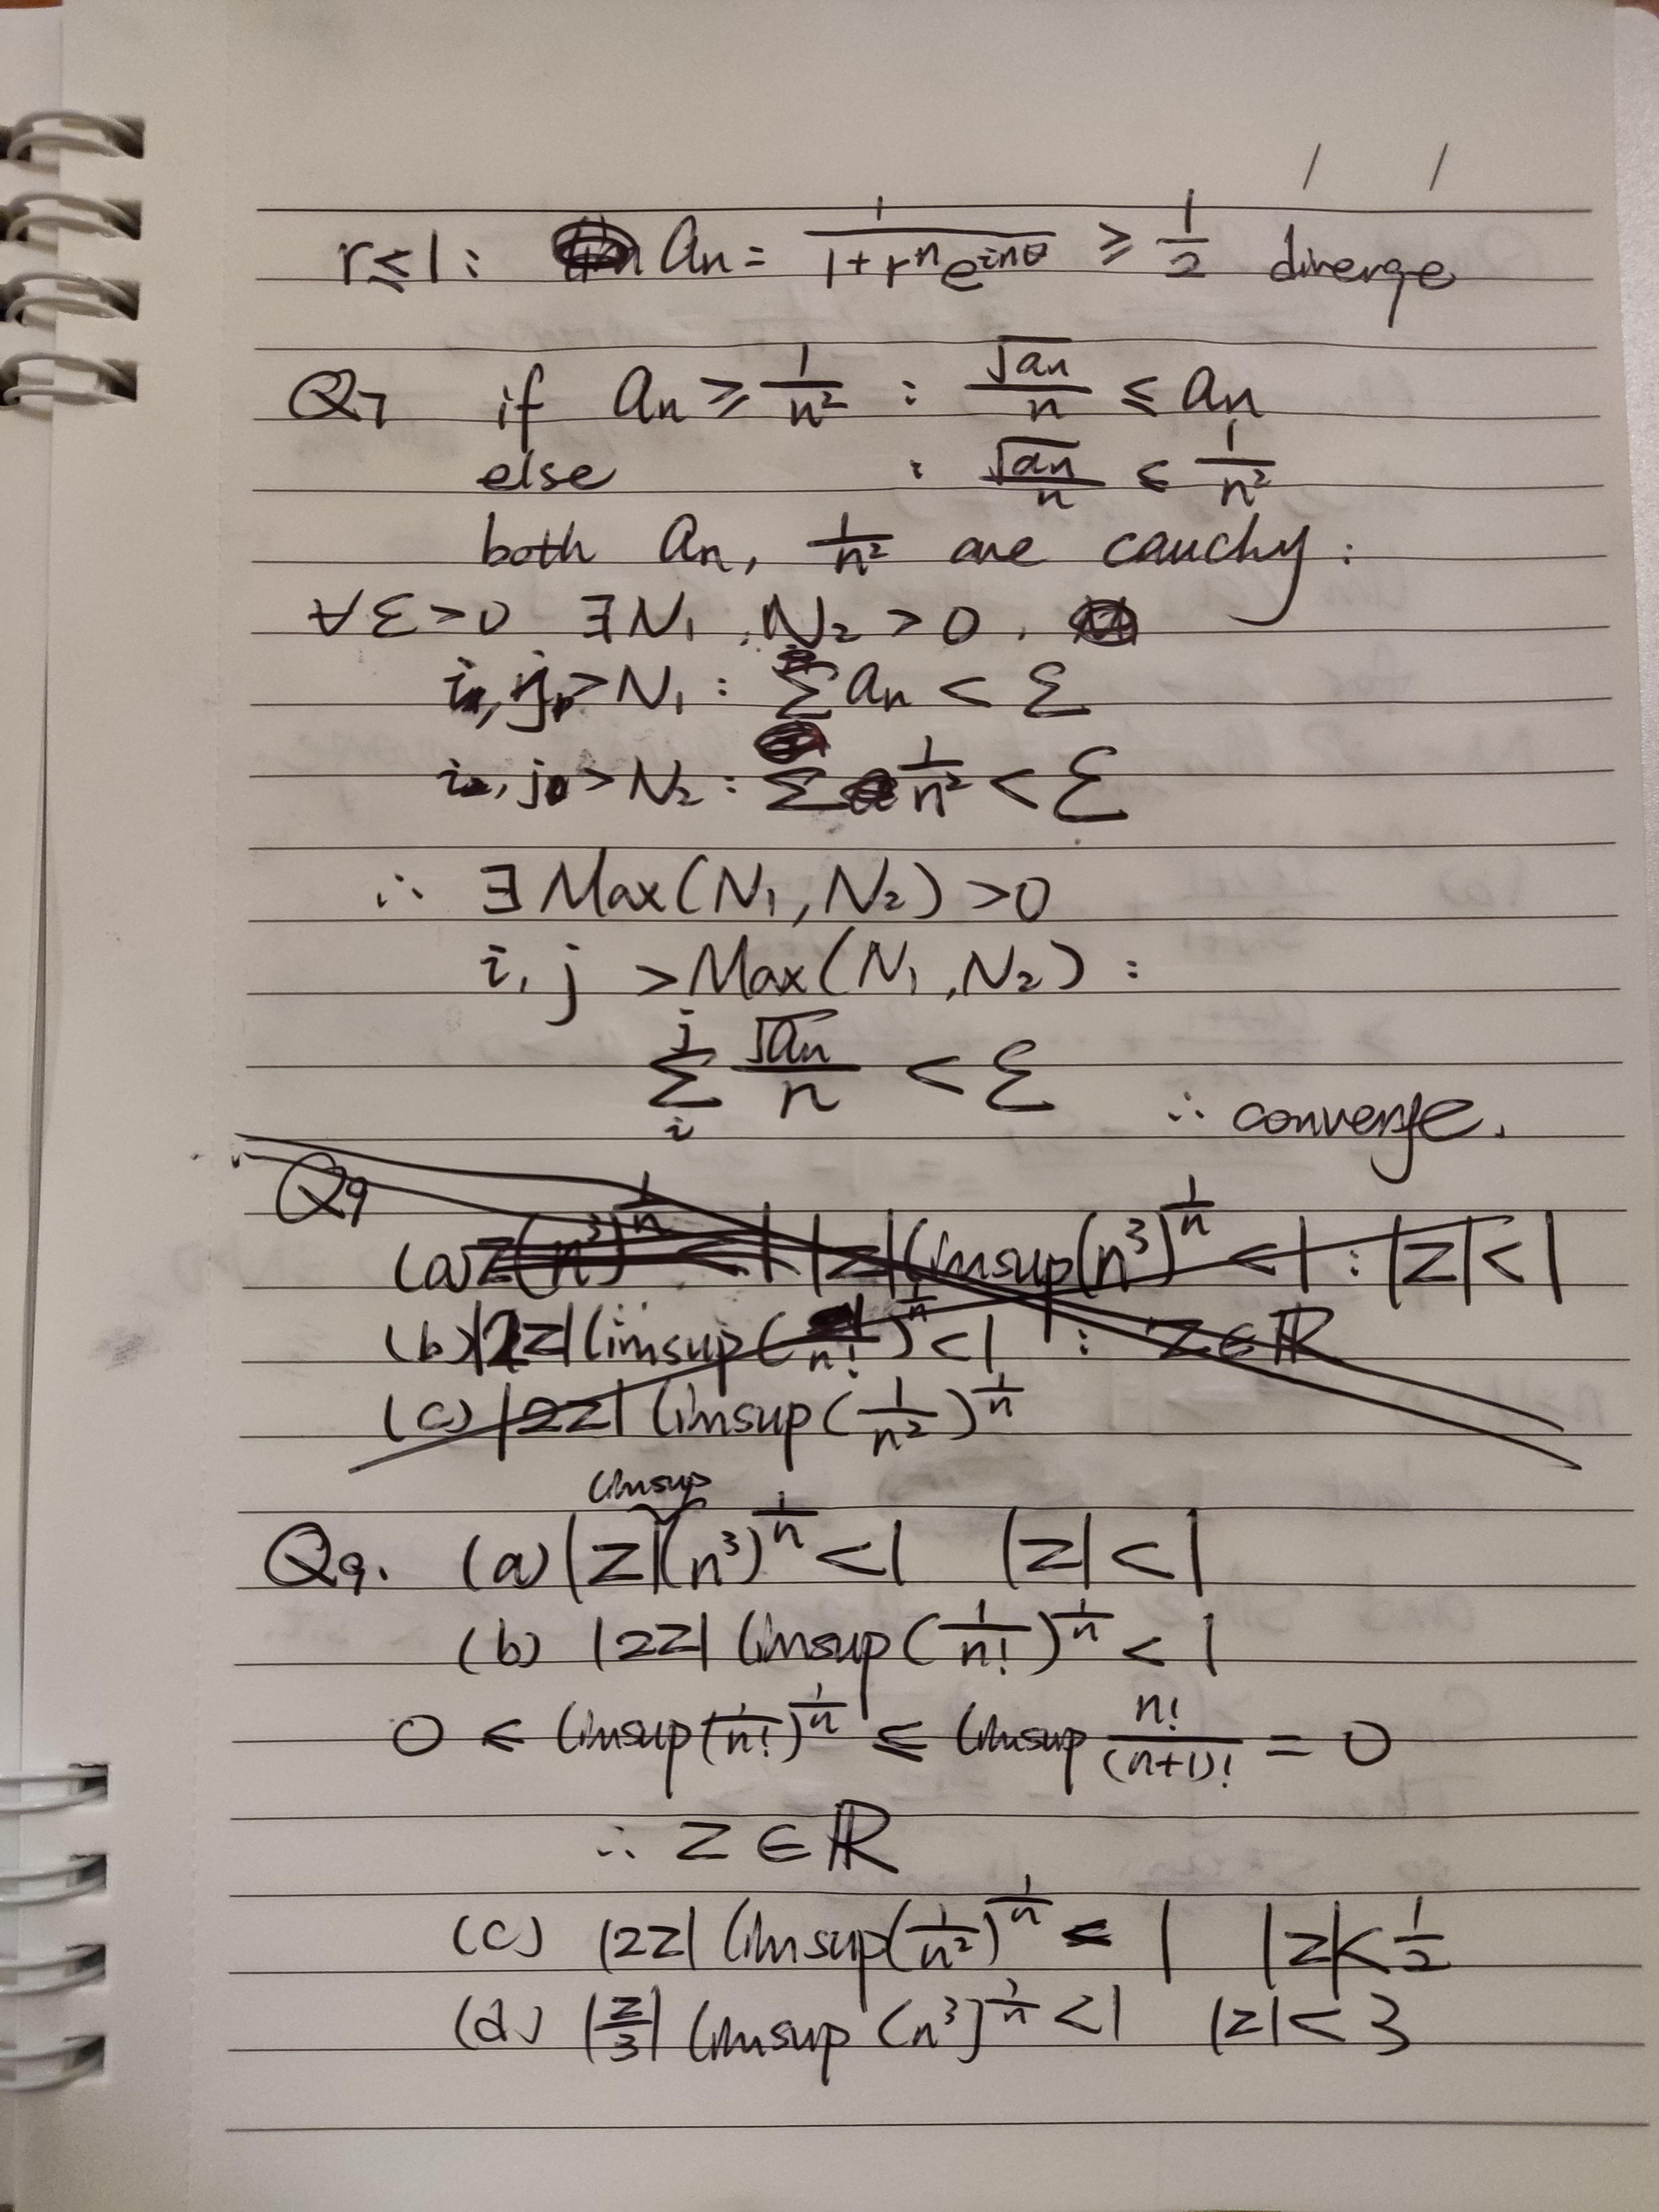 r ≤ 1 : aₙ = 1/(1 + rⁿe^{inθ}) ≥ 1/2 diverge
Q7 if aₙ ≥ 1/n² : √aₙ/n ≤ aₙ
else : √aₙ/n ≤ 1/n²
both aₙ, 1/n² are cauchy :
∀ε>0 ∃N₁, N₂ > 0 .
i, j > N₁ : Σ aₙ < ε
i, j > N₂ : Σ 1/n² < ε
∴ ∃ Max(N₁, N₂) > 0
i, j > Max(N₁, N₂) :
Σᵢʲ √aₙ/n < ε ∴ converge.
Q9
(a) z(n³)^{1/n} < 1 |z| limsup(n³)^{1/n} < 1 : |z| < 1
(b) |2z| limsup(1/n!)^{1/n} < 1 : z∈ℝ
(c) |2z| limsup(1/n²)^{1/n}
limsup
Q9. (a) |z|(n³)^{1/n} < 1 |z| < 1
(b) |2z| limsup(1/n!)^{1/n} < 1
0 ≤ limsup(1/n!)^{1/n} ≤ limsup n!/(n+1)! = 0
∴ z ∈ ℝ
(c) |2z| limsup(1/n²)^{1/n} < 1 |z| < 1/2
(d) |z/3| limsup (n³)^{1/n} < 1 |z| < 3